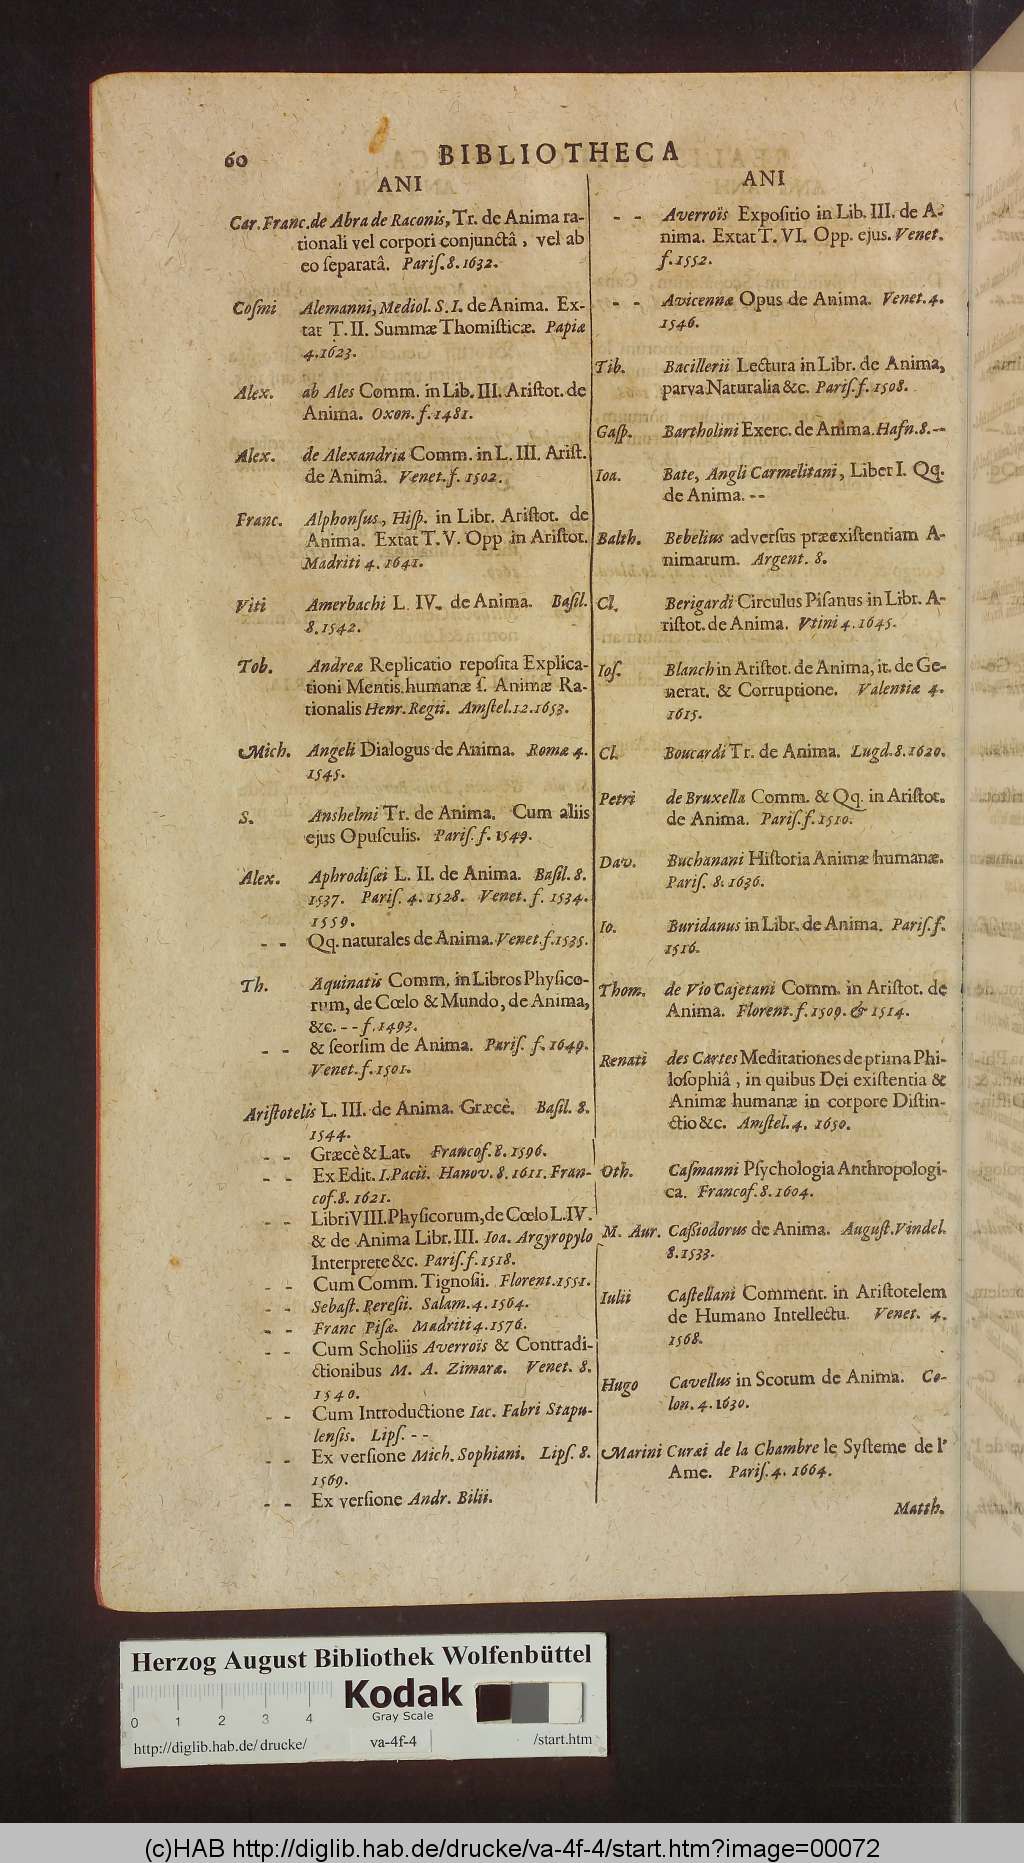 60
BIBLIOTHECA
ANI
Car. Franc. de Abra de Raconis, Tr. de Anima ra-
tionali vel corpori conjunctâ, vel ab
eo ſeparatâ. Pariſ. 8. 1632.
Coſmi Alemanni, Mediol. S. I. de Anima. Ex-
tat T. II. Summæ Thomiſticæ. Papiæ
4. 1623.
Alex. ab Ales Comm. in Lib. III. Ariſtot. de
Anima. Oxon. f. 1481.
Alex. de Alexandria Comm. in L. III. Ariſt.
de Animâ. Venet. f. 1502.
Franc. Alphonſus, Hiſp. in Libr. Ariſtot. de
Anima. Extat T. V. Opp in Ariſtot.
Madriti 4. 1641.
Viti Amerbachi L. IV. de Anima. Baſil.
8. 1542.
Tob. Andreæ Replicatio repoſita Explica-
tioni Mentis humanæ ſ. Animæ Ra-
tionalis Henr. Regii. Amſtel. 12. 1653.
Mich. Angeli Dialogus de Anima. Romæ 4.
1545.
S. Anshelmi Tr. de Anima. Cum aliis
ejus Opuſculis. Pariſ. f. 1549.
Alex. Aphrodiſæi L. II. de Anima. Baſil. 8.
1537. Pariſ. 4. 1528. Venet. f. 1534.
1559.
- - Qq. naturales de Anima. Venet. f. 1535.
Th. Aquinatis Comm. in Libros Phyſico-
rum, de Cœlo & Mundo, de Anima,
&c. - - f. 1493.
- - & ſeorſim de Anima. Pariſ. f. 1649.
Venet. f. 1501.
Ariſtotelis L. III. de Anima. Græcè. Baſil. 8.
1544.
- - Græcè & Lat. Francof. 8. 1596.
- - Ex Edit. I. Pacii. Hanov. 8. 1611. Fran-
cof. 8. 1621.
- - Libri VIII. Phyſicorum, de Cœlo L. IV.
& de Anima Libr. III. Ioa. Argyropylo
Interprete &c. Pariſ. f. 1518.
- - Cum Comm. Tignoſii. Florent. 1551.
- - Sebaſt. Pereſii. Salam. 4. 1564.
- - Franc Piſæ. Madriti 4. 1576.
- - Cum Scholiis Averroïs & Contradi-
ctionibus M. A. Zimaræ. Venet. 8.
1540.
- - Cum Introductione Iac. Fabri Stapu-
lenſis. Lipſ. - -
- - Ex verſione Mich. Sophiani. Lipſ. 8.
1569.
- - Ex verſione Andr. Bilii.
ANI
- - Averroïs Expoſitio in Lib. III. de A-
nima. Extat T. VI. Opp. ejus. Venet.
f. 1552.
- - Avicennæ Opus de Anima. Venet. 4.
1546.
Tib. Bacillerii Lectura in Libr. de Anima,
parva Naturalia &c. Pariſ. f. 1508.
Gaſp. Bartholini Exerc. de Anima. Hafn. 8. - -
Ioa. Bate, Angli Carmelitani, Liber I. Qq.
de Anima. - -
Balth. Bebelius adverſus præexiſtentiam A-
nimarum. Argent. 8.
Cl. Berigardi Circulus Piſanus in Libr. A-
riſtot. de Anima. Vtini 4. 1645.
Ioſ. Blanch in Ariſtot. de Anima, it. de Ge-
nerat. & Corruptione. Valentiæ 4.
1615.
Cl. Boucardi Tr. de Anima. Lugd. 8. 1620.
Petri de Bruxella Comm. & Qq. in Ariſtot.
de Anima. Pariſ. f. 1510.
Dav. Buchanani Hiſtoria Animæ humanæ.
Pariſ. 8. 1636.
Io. Buridanus in Libr. de Anima. Pariſ. f.
1516.
Thom. de Vio Cajetani Comm. in Ariſtot. de
Anima. Florent. f. 1509. & 1514.
Renati des Cartes Meditationes de prima Phi-
loſophiâ, in quibus Dei exiſtentia &
Animæ humanæ in corpore Diſtin-
ctio &c. Amſtel. 4. 1650.
Oth. Caſmanni Pſychologia Anthropologi-
ca. Francof. 8. 1604.
M. Aur. Caſſiodorus de Anima. Auguſt. Vindel.
8. 1533.
Iulii Caſtellani Comment. in Ariſtotelem
de Humano Intellectu. Venet. 4.
1568.
Hugo Cavellus in Scotum de Anima. Co-
lon. 4. 1630.
Marini Curæi de la Chambre le Syſteme de l'
Ame. Pariſ. 4. 1664.
Matth.
Herzog August Bibliothek Wolfenbüttel
Kodak
Gray Scale
0 1 2 3 4
http://diglib.hab.de/drucke/ va-4f-4 /start.htm
(c)HAB http://diglib.hab.de/drucke/va-4f-4/start.htm?image=00072